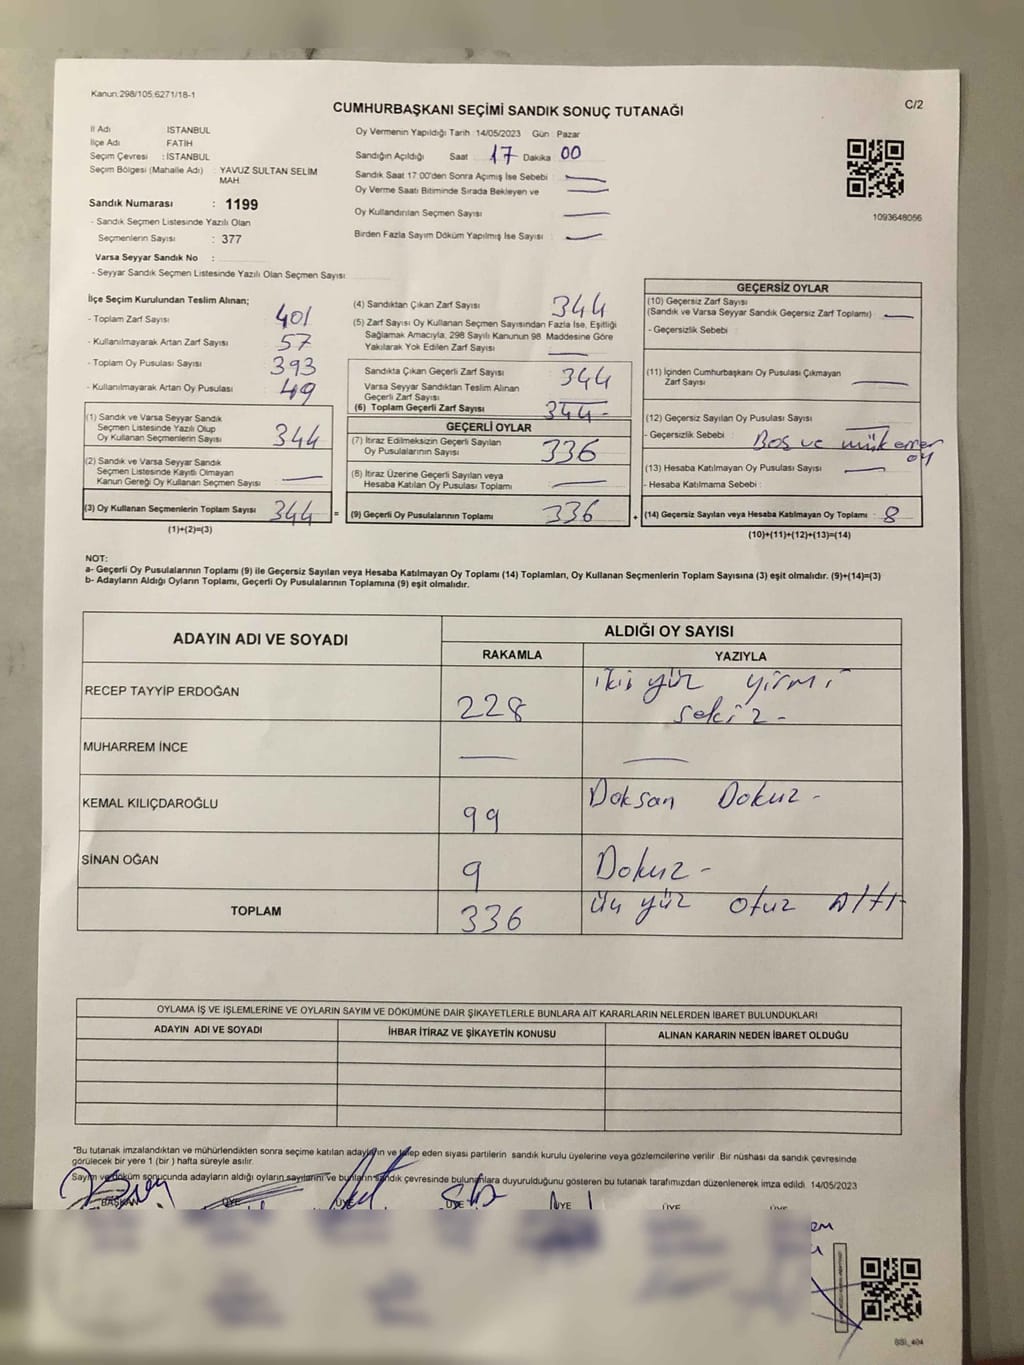 Kanun:298/105;6271/18-1
C/2
CUMHURBAŞKANI SEÇİMİ SANDIK SONUÇ TUTANAĞI
İl Adı İSTANBUL
İlçe Adı FATİH
Seçim Çevresi : İSTANBUL
Seçim Bölgesi (Mahalle Adı) : YAVUZ SULTAN SELİM MAH
Sandık Numarası : 1199
- Sandık Seçmen Listesinde Yazılı Olan
Seçmenlerin Sayısı : 377
Varsa Seyyar Sandık No :
- Seyyar Sandık Seçmen Listesinde Yazılı Olan Seçmen Sayısı:
Oy Vermenin Yapıldığı Tarih : 14/05/2023 Gün : Pazar
Sandığın Açıldığı Saat 17 Dakika 00
Sandık Saat 17:00'den Sonra Açımış İse Sebebi :
Oy Verme Saati Bitiminde Sırada Bekleyen ve
Oy Kullandırılan Seçmen Sayısı
Birden Fazla Sayım Döküm Yapılmış İse Sayısı :
1093648056
İlçe Seçim Kurulundan Teslim Alınan;
- Toplam Zarf Sayısı 401
- Kullanılmayarak Artan Zarf Sayısı 57
- Toplam Oy Pusulası Sayısı 393
- Kullanılmayarak Artan Oy Pusulası 49
(1) Sandık ve Varsa Seyyar Sandık
Seçmen Listesinde Yazılı Olup
Oy Kullanan Seçmenlerin Sayısı 344
(2) Sandık ve Varsa Seyyar Sandık
Seçmen Listesinde Kayıtlı Olmayan
Kanun Gereği Oy Kullanan Seçmen Sayısı
(3) Oy Kullanan Seçmenlerin Toplam Sayısı 344 =
(1)+(2)=(3)
(4) Sandıktan Çıkan Zarf Sayısı 344
(5) Zarf Sayısı Oy Kullanan Seçmen Sayısından Fazla İse, Eşitliği
Sağlamak Amacıyla, 298 Sayılı Kanunun 98. Maddesine Göre
Yakılarak Yok Edilen Zarf Sayısı
Sandıkta Çıkan Geçerli Zarf Sayısı 344
Varsa Seyyar Sandıktan Teslim Alınan
Geçerli Zarf Sayısı
(6) Toplam Geçerli Zarf Sayısı 344-
GEÇERLİ OYLAR
(7) İtiraz Edilmeksizin Geçerli Sayılan
Oy Pusulalarının Sayısı 336
(8) İtiraz Üzerine Geçerli Sayılan veya
Hesaba Katılan Oy Pusulası Toplamı
(9) Geçerli Oy Pusulalarının Toplamı 336 +
GEÇERSİZ OYLAR
(10) Geçersiz Zarf Sayısı
(Sandık ve Varsa Seyyar Sandık Geçersiz Zarf Toplamı)
- Geçersizlik Sebebi :
(11) İçinden Cumhurbaşkanı Oy Pusulası Çıkmayan
Zarf Sayısı
(12) Geçersiz Sayılan Oy Pusulası Sayısı
- Geçersizlik Sebebi : Boş ve mükerrer
oy
(13) Hesaba Katılmayan Oy Pusulası Sayısı
- Hesaba Katılmama Sebebi :
(14) Geçersiz Sayılan veya Hesaba Katılmayan Oy Toplamı : 8
(10)+(11)+(12)+(13)=(14)
NOT:
a- Geçerli Oy Pusulalarının Toplamı (9) ile Geçersiz Sayılan veya Hesaba Katılmayan Oy Toplamı (14) Toplamları, Oy Kullanan Seçmenlerin Toplam Sayısına (3) eşit olmalıdır. (9)+(14)=(3)
b- Adayların Aldığı Oyların Toplamı, Geçerli Oy Pusulalarının Toplamına (9) eşit olmalıdır.
ADAYIN ADI VE SOYADI
ALDIĞI OY SAYISI
RAKAMLA YAZIYLA
RECEP TAYYİP ERDOĞAN 228 iki yüz yirmi
sekiz-
MUHARREM İNCE
KEMAL KILIÇDAROĞLU 99 Doksan Dokuz-
SİNAN OĞAN 9 Dokuz-
TOPLAM 336 üç yüz otuz Altı-
OYLAMA İŞ VE İŞLEMLERİNE VE OYLARIN SAYIM VE DÖKÜMÜNE DAİR ŞİKAYETLERLE BUNLARA AİT KARARLARIN NELERDEN İBARET BULUNDUKLARI
ADAYIN ADI VE SOYADI İHBAR İTİRAZ VE ŞİKAYETİN KONUSU ALINAN KARARIN NEDEN İBARET OLDUĞU
*Bu tutanak imzalandıktan ve mühürlendikten sonra seçime katılan adayların ve talep eden siyasi partilerin sandık kurulu üyelerine veya gözlemcilerine verilir. Bir nüshası da sandık çevresinde
görülecek bir yere 1 (bir ) hafta süreyle asılır.
Sayım ve döküm sonucunda adayların aldığı oyların sayılarını ve bunların sandık çevresinde bulunanlara duyurulduğunu gösteren bu tutanak tarafımızdan düzenlenerek imza edildi. 14/05/2023
BAŞKAN ÜYE ÜYE ÜYE ÜYE ÜYE ÜYE